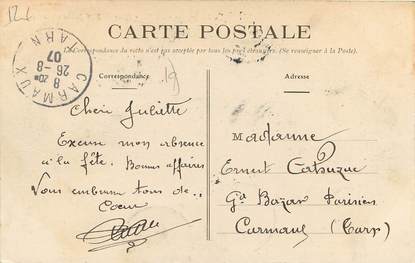 CARTE POSTALE
La Correspondance du recto n'est pas acceptée par tous les pays étrangers. (Se renseigner à la Poste).
CARMAUX
TARN
8 20
26-8
07
Correspondance
Adresse
Chère Juliette
Excuse mon absence
à la fête. Bonnes affaires
Vous embrasse tous de..
Coeur
Madame
Ernest Cahuzac
Gd Bazar Parisien
Carmaux (Tarn)